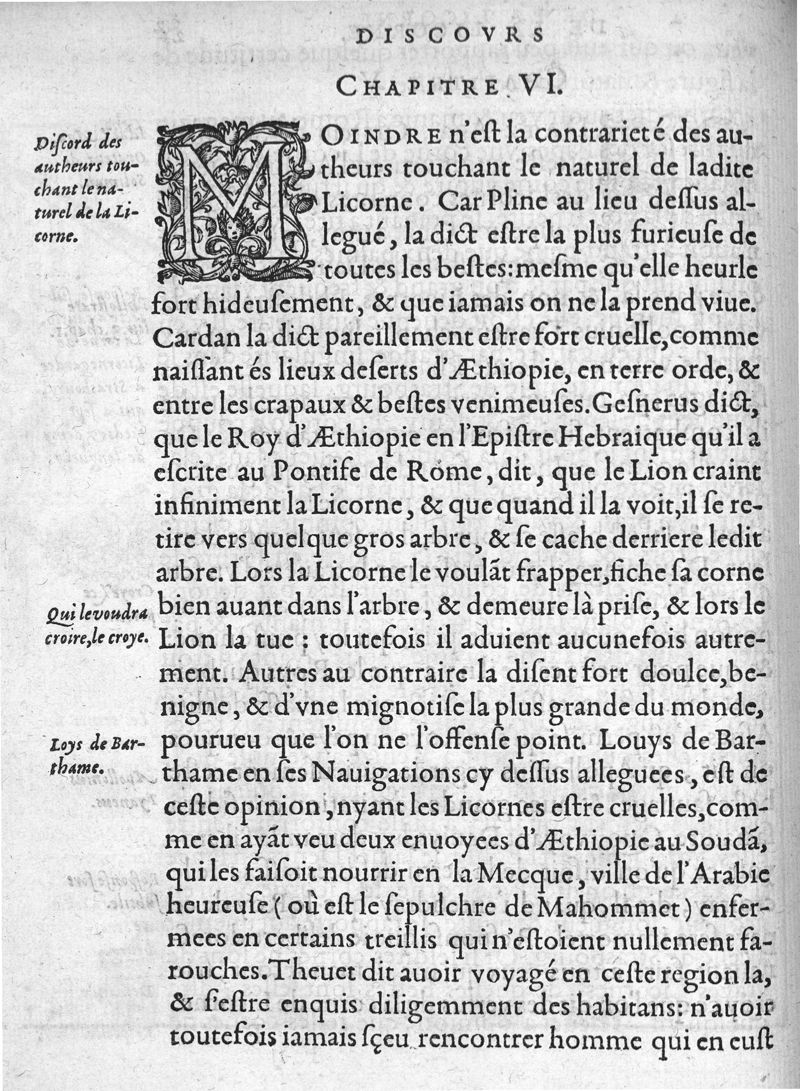 DISCOVRS
CHAPITRE VI.
Diſcord des
autheurs tou-
chant le na-
turel de la Li-
corne.
MOINDRE n'eſt la contrarieté des au-
theurs touchant le naturel de ladite
Licorne. Car Pline au lieu deſſus al-
legué, la dict eſtre la plus furieuſe de
toutes les beſtes: meſme qu'elle heurle
fort hideuſement, & que iamais on ne la prend viue.
Cardan la dict pareillement eſtre fort cruelle, comme
naiſſant és lieux deſerts d'Æthiopie, en terre orde, &
entre les crapaux & beſtes venimeuſes. Geſnerus dict,
que le Roy d'Æthiopie en l'Epiſtre Hebraique qu'il a
eſcrite au Pontife de Rome, dit, que le Lion craint
infiniment la Licorne, & que quand il la voit, il ſe re-
tire vers quelque gros arbre, & ſe cache derriere ledit
arbre. Lors la Licorne le voulãt frapper, fiche ſa corne
bien auant dans l'arbre, & demeure là priſe, & lors le
Lion la tue : toutefois il aduient aucunefois autre-
ment. Autres au contraire la diſent fort doulce, be-
nigne, & d'vne mignotiſe la plus grande du monde,
pourueu que l'on ne l'offenſe point. Louys de Bar-
thame en ſes Nauigations cy deſſus alleguees, eſt de
ceſte opinion, nyant les Licornes eſtre cruelles, com-
me en ayãt veu deux enuoyees d'Æthiopie au Soudã,
qui les faiſoit nourrir en la Mecque, ville de l'Arabie
heureuſe (où eſt le ſepulchre de Mahommet) enfer-
mees en certains treillis qui n'eſtoient nullement fa-
rouches. Theuet dit auoir voyagé en ceſte region la,
& ſ'eſtre enquis diligemment des habitans: n'auoir
toutefois iamais ſçeu rencontrer homme qui en euſt
Qui le voudra
croire, le croye.
Loys de Bar-
thame.